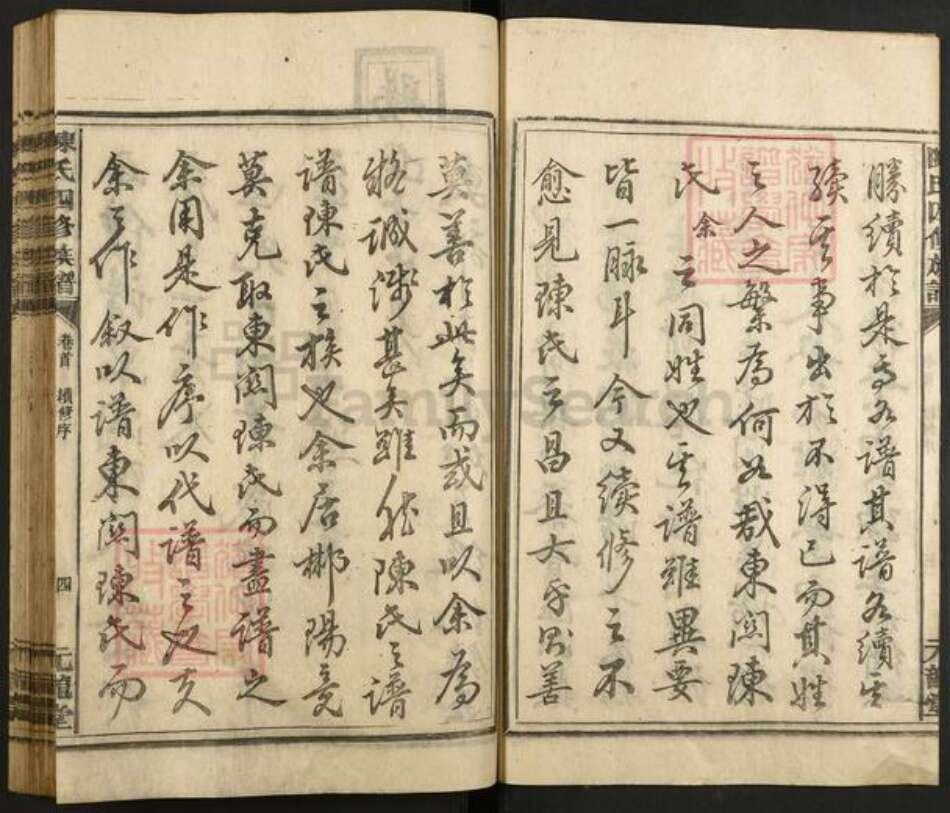 陳氏四修族譜
元龍堂
勝續於是各譜其譜各續其
續其事出於不得已而其姓
之人之繁為何如哉東關陳
氏余之同姓也其譜雖異要
皆一脉耳今又續修之不
愈見陳氏之昌且大乎則善
莫善於此矣而或且以余為
務誠涉甚矣雖然陳氏之譜
譜陳氏之族也余居郴陽竟
莫克取東關陳氏而盡譜之
余用是作序以代譜之也夫
余之作敘以譜東關陳氏而
陳氏四修族譜
卷首 續修序
四
元龍堂
FamilySearch